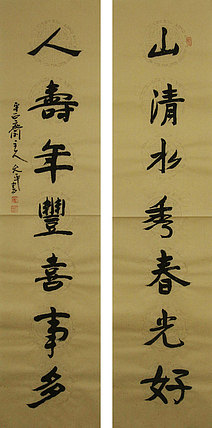 山清水秀春光好
人寿年豐喜事多